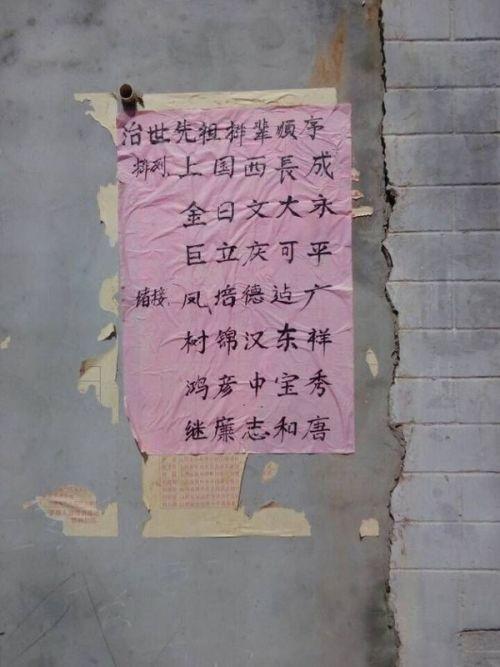 治世先祖排辈順序
排列, 上国西長成
金日文大永
巨立庆可平
续接, 凤培德运广
树锦汉东祥
鸿彦中宝秀
继廉志和唐